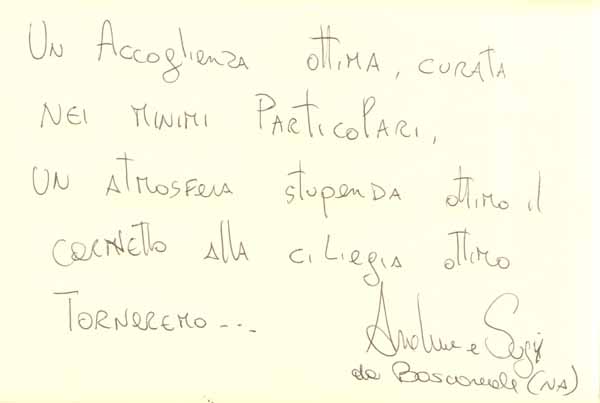 Un Accoglienza ottima, curata
nei minimi particolari,
un atmosfera stupenda ottimo il
cornetto alla ciliegia ottimo
Torneremo...
da Boscoreale (NA)